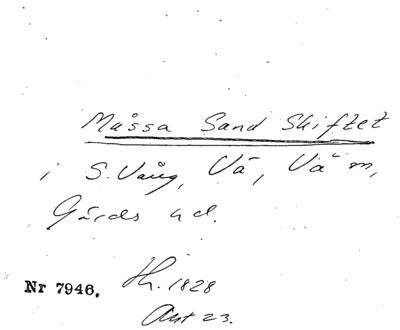 Måssa Sand Skiftet
i S. Vång, Vä, Vä sn,
Gärds hd.
Nr 7946. H. 1828
Akt 23.